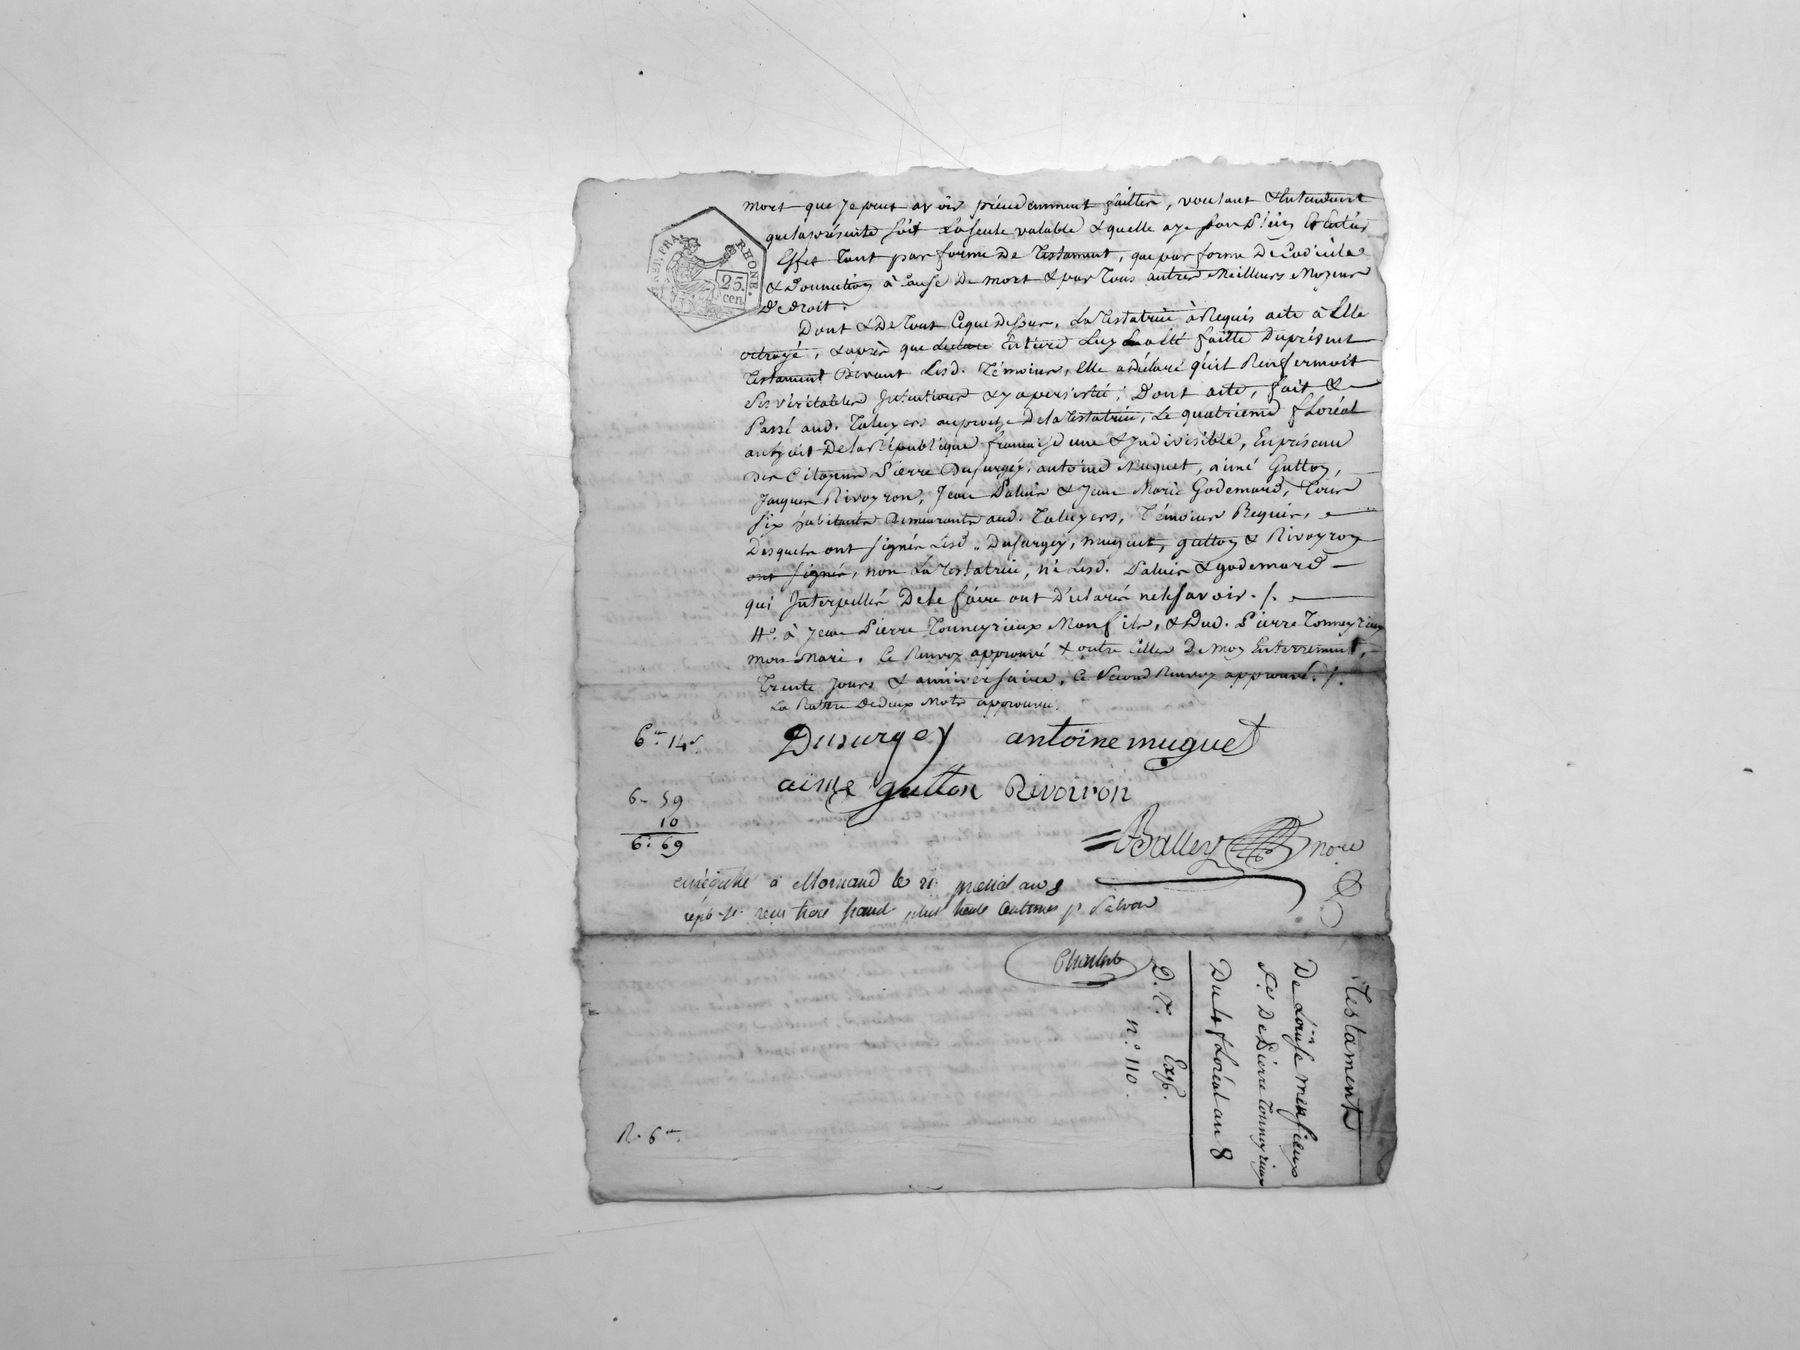 mort que Je peut avoir précédemment faitter, voulant & Entendant
que la présente soit La seule valable & quelle aye son plein & Entier
Effet tant par forme De Testament, que par forme De Codicile
& Donnation à Cause De mort & par Tous autres Meilleurs Moyens
De droit.
RÉP. FRA. RHONE.
25 cen
Dont & De Tout Ceque Dessus, La Testatrice à Requis acte à Elle
octroyé, & après que Lecture Entiere Luy a Eté faitte Duprésent
Testament Devant Lesd. Témoins, Elle a déclaré quil Renfermoit
Ses véritables Intentions & y a persisté; Dont acte, fait &
Passé aud. Taluyers au Dela Testatrice, Le quatrieme floréal
an huit De la République française une & Indivisible, En présence
Des Citoyens Pierre Dusurgey, antoine Muguet, aimé Gutton,
Jacques Rivoyron, Jean & Jean Marie Godemard, Tous
Six habitants Demeurants aud. Taluyers, Témoins Requis,
Desquels ont signés Lesd. Dusurgey, muguet, gutton & Rivoyron
ont signés, non La Testatrice, ni Lesd. & godemard
qui Interpellés De le faire ont Déclarés ne le Savoir ./.
4º. à Jean Pierre Tonneyrieux Mon fils, & Dud. Pierre Tonneyrieux
mon Mari. Ce Renvoy approuvé & outre Celles De mon Enterrement,
Trente jours & anniversaire, Ce Second Renvoy approuvé ./.
La Rature Dedeux Mots approuvée.
6.tt 14.s
Dusurgey antoine muguet
aimé gutton Rivoiron
6. 59
10
6. 69
Balley no.re
enregistré à Mornand le 21 an 8
reçu trois francs plus trente Centimes
R. 6.tt
Testament
De Loüise
f.e De Pierre Tonneyrieux
Du 4 floréal an 8
Exp.
n.º 110.